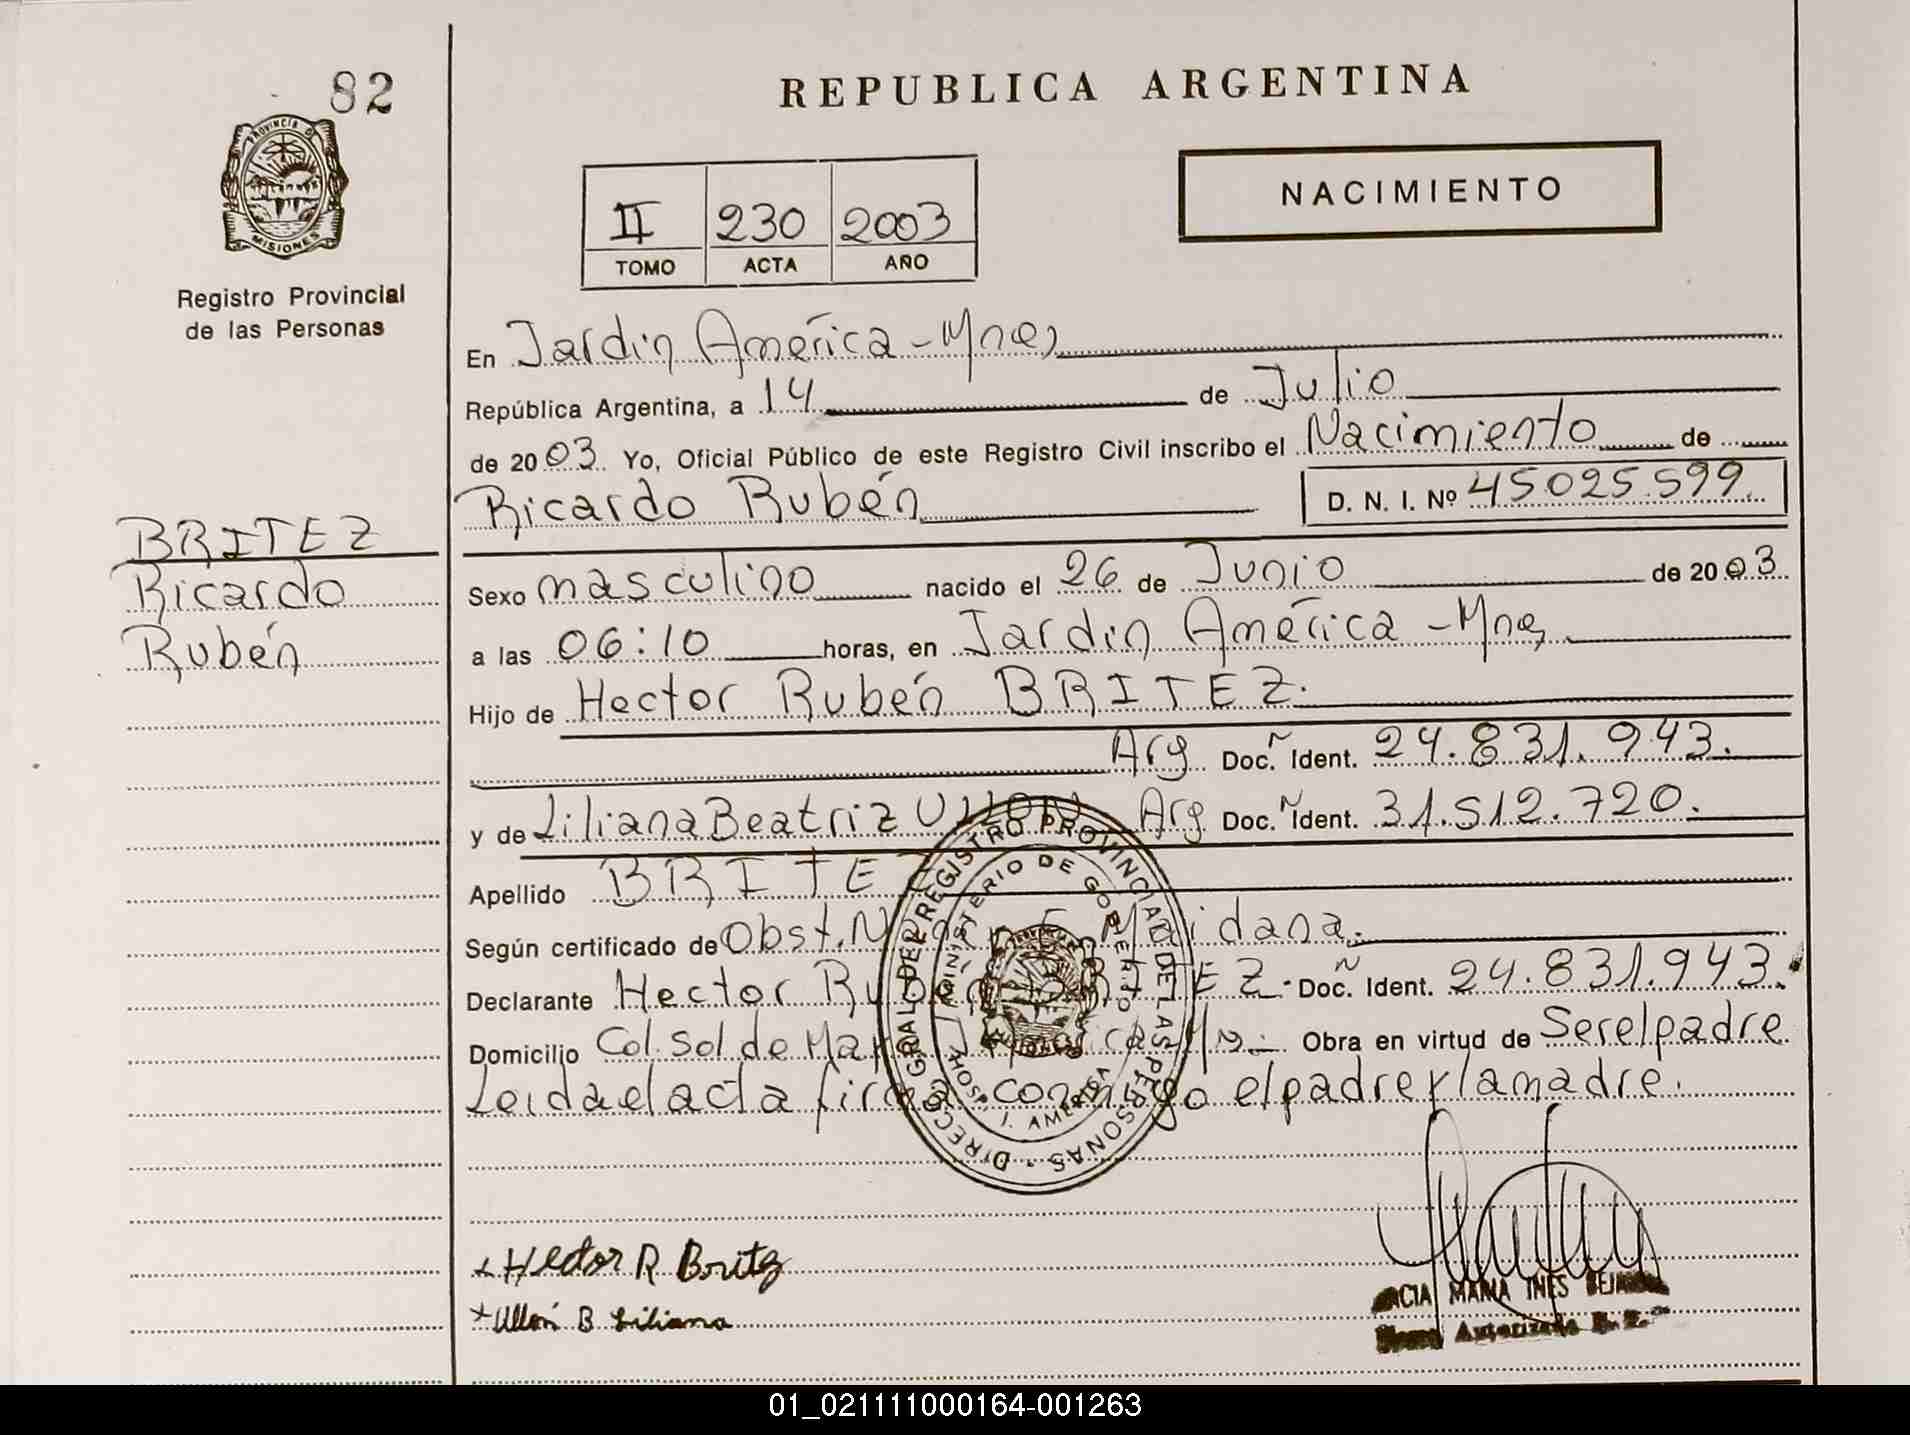 82
REPUBLICA ARGENTINA
NACIMIENTO
II 230 2003
TOMO ACTA AÑO
PROVINCIA DE
MISIONES
Registro Provincial
de las Personas
En Jardin América - Mnes
República Argentina, a 14 de Julio
de 2003. Yo, Oficial Público de este Registro Civil inscribo el Nacimiento de
Ricardo Rubén D. N. I. Nº 45025.599.
BRITEZ
Ricardo
Rubén
Sexo masculino nacido el 26 de Junio de 2003
a las 06:10 horas, en Jardin América - Mnes
Hijo de Hector Rubén BRITEZ.
Arg Doc. Ident. 24.831.943.
y de Liliana Beatriz Ullon Arg Doc. Ident. 31.512.720.
Apellido BRITEZ
Según certificado de Obst. Maidana.
Declarante Hector Rubén BRITEZ. Doc. Ident. 24.831.943.
Domicilio Col. Sol de Mayo Obra en virtud de Ser el padre
Leida el acta firma conmigo el padre y la madre.
DIRECC. GRAL DEL REGISTRO PROVINCIAL DE LAS PERSONAS
MINISTERIO DE GOBIERNO
J. AMERICA
Hector R Britez
Ullón B Liliana
MARIA INES
Autorizada
01_021111000164-001263